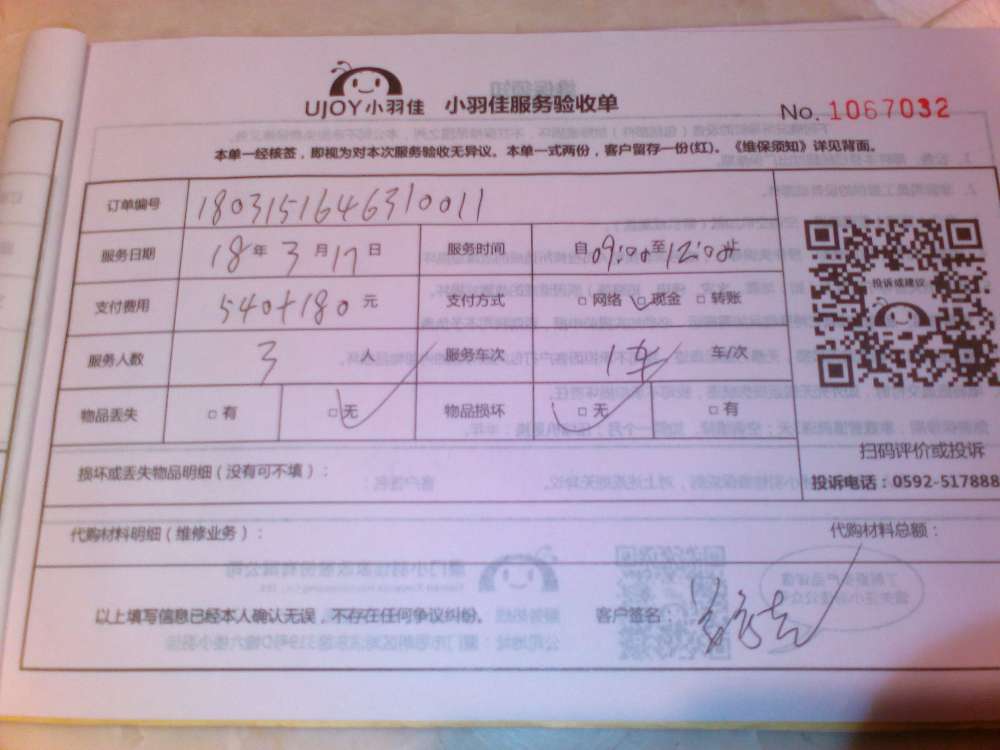 UJOY小羽佳 小羽佳服务验收单
No. 1067032
本单一经核签，即视为对本次服务验收无异议。本单一式两份，客户留存一份(红)。《维保须知》详见背面。
订单编号 1803151646310011
服务日期 18年 3月17日 服务时间 自09:00至12:00止
支付费用 540+180元 支付方式 □网络 □现金 □转账
投诉或建议
服务人数 3人 服务车次 1车 车/次
物品丢失 □有 □无 物品损坏 □无 □有
扫码评价或投诉
损坏或丢失物品明细（没有可不填）：
投诉电话：0592-517888
代购材料明细（维修业务）： 代购材料总额：
以上填写信息已经本人确认无误，不存在任何争议纠纷。 客户签名：